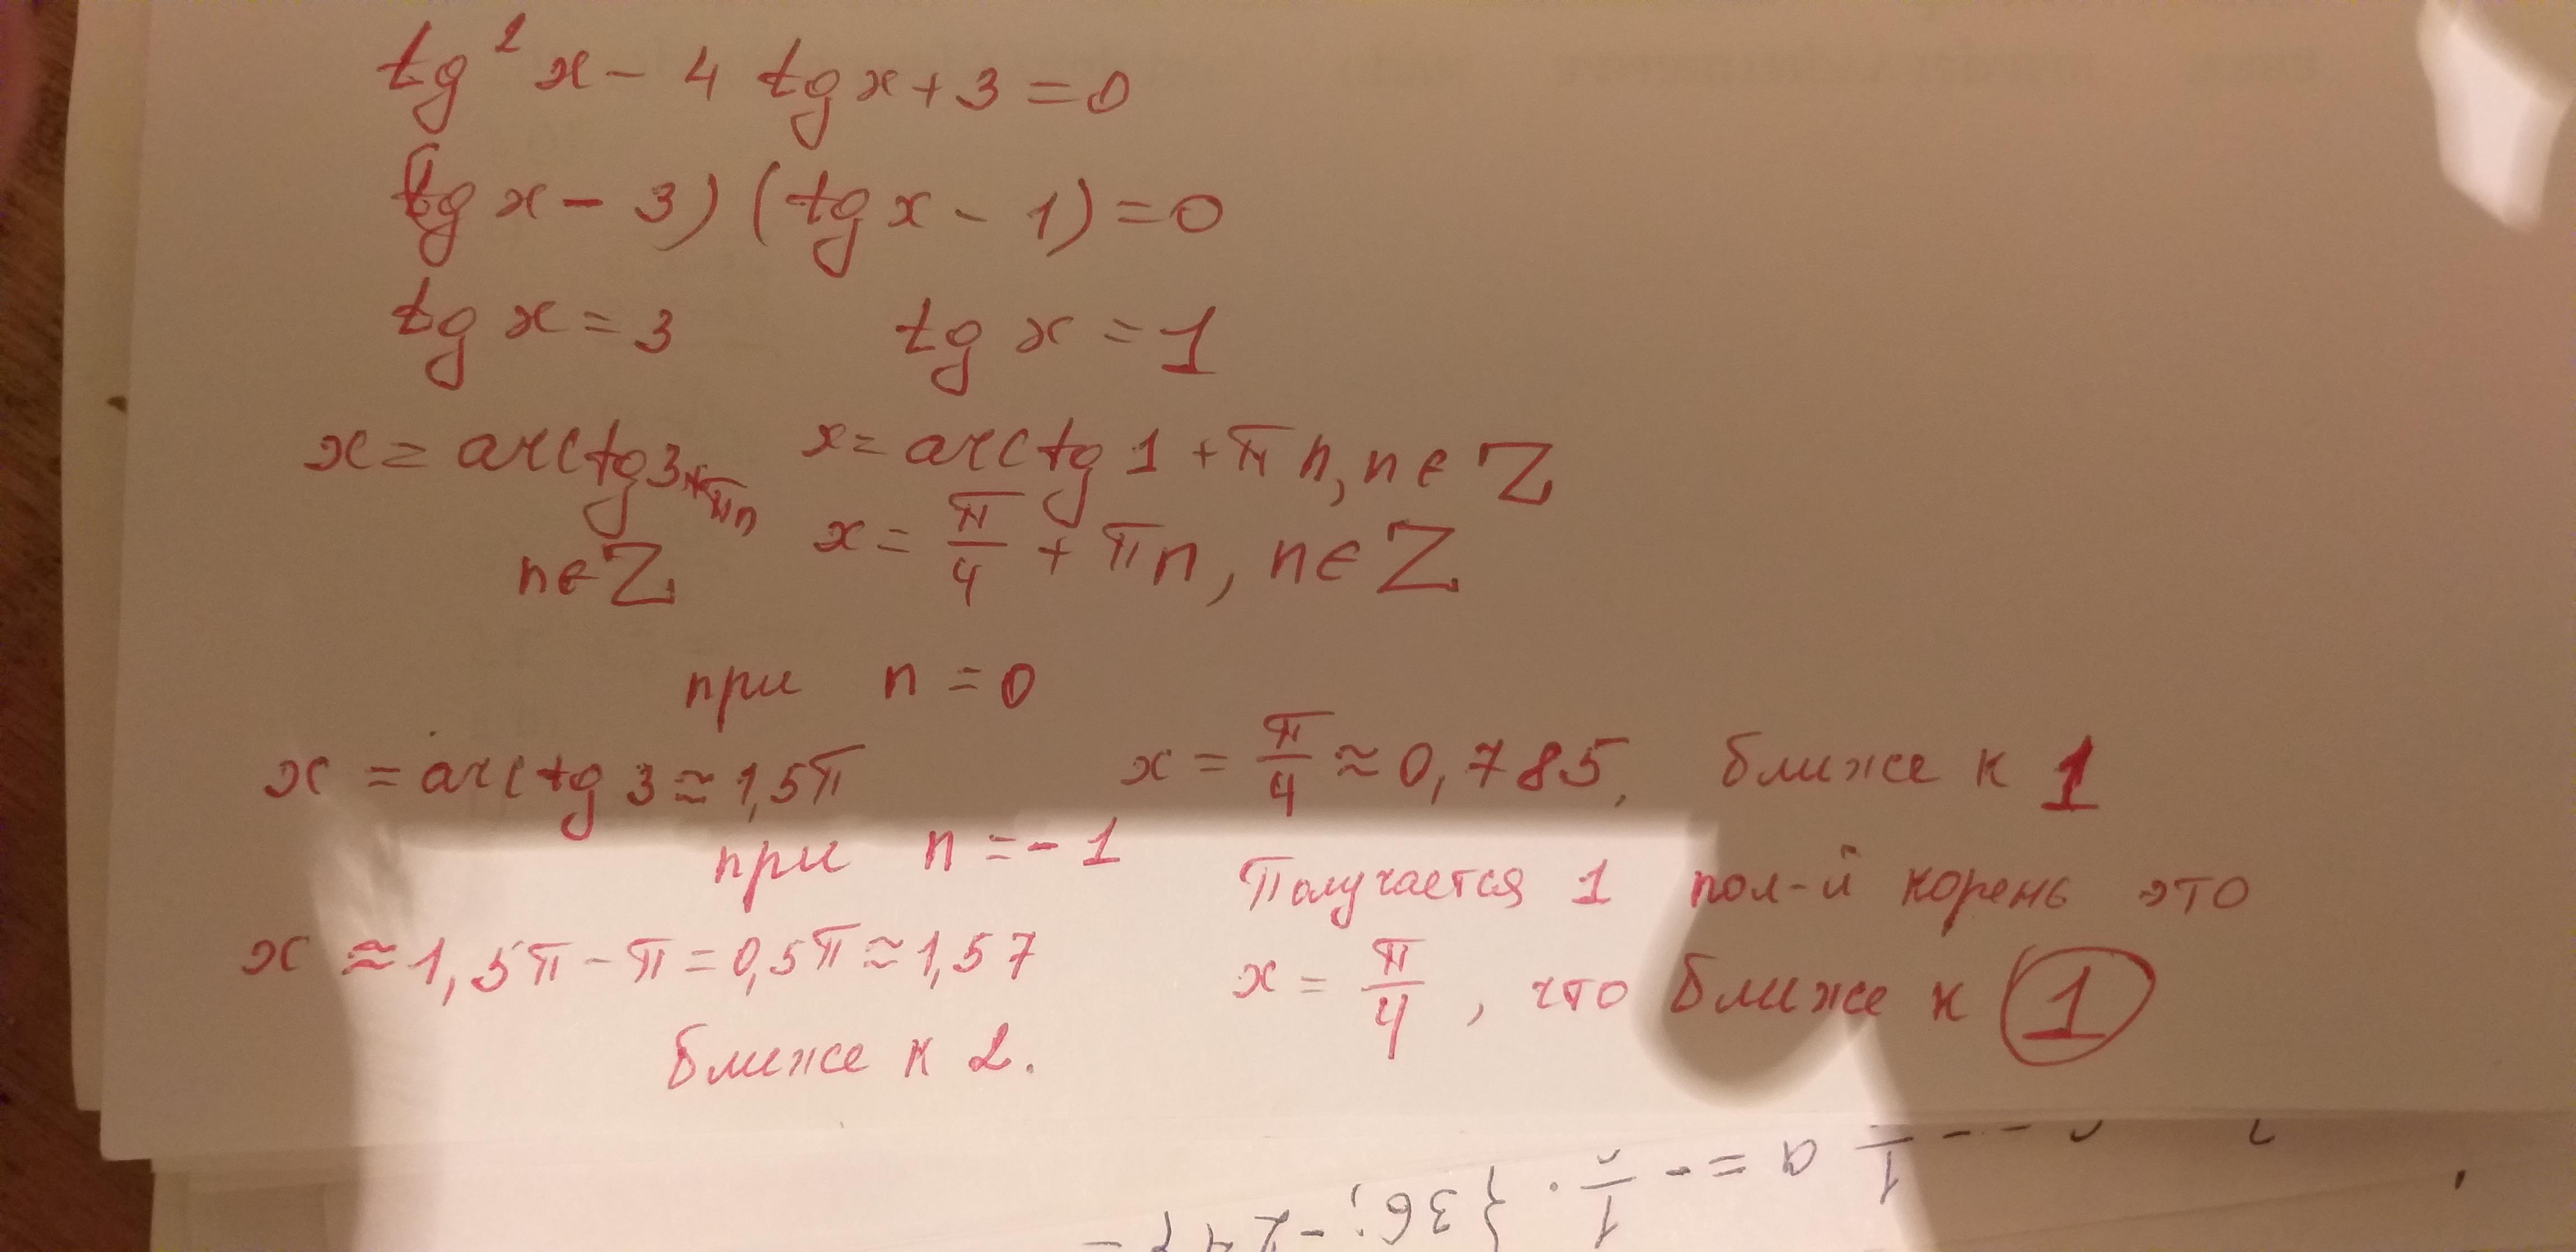 tg² x - 4 tg x + 3 = 0
(tg x - 3) (tg x - 1) = 0
tg x = 3 tg x = 1
x = arctg 3 + πn x = arctg 1 + πn, n ∈ Z
n ∈ Z x = π/4 + πn, n ∈ Z
при n = 0
x = arctg 3 ≈ 1,5π x = π/4 ≈ 0,785, ближе к 1
при n = -1 Получается 1 пол-й корень это
x ≈ 1,5π - π = 0,5π ≈ 1,57 x = π/4, что ближе к 1
ближе к 2.